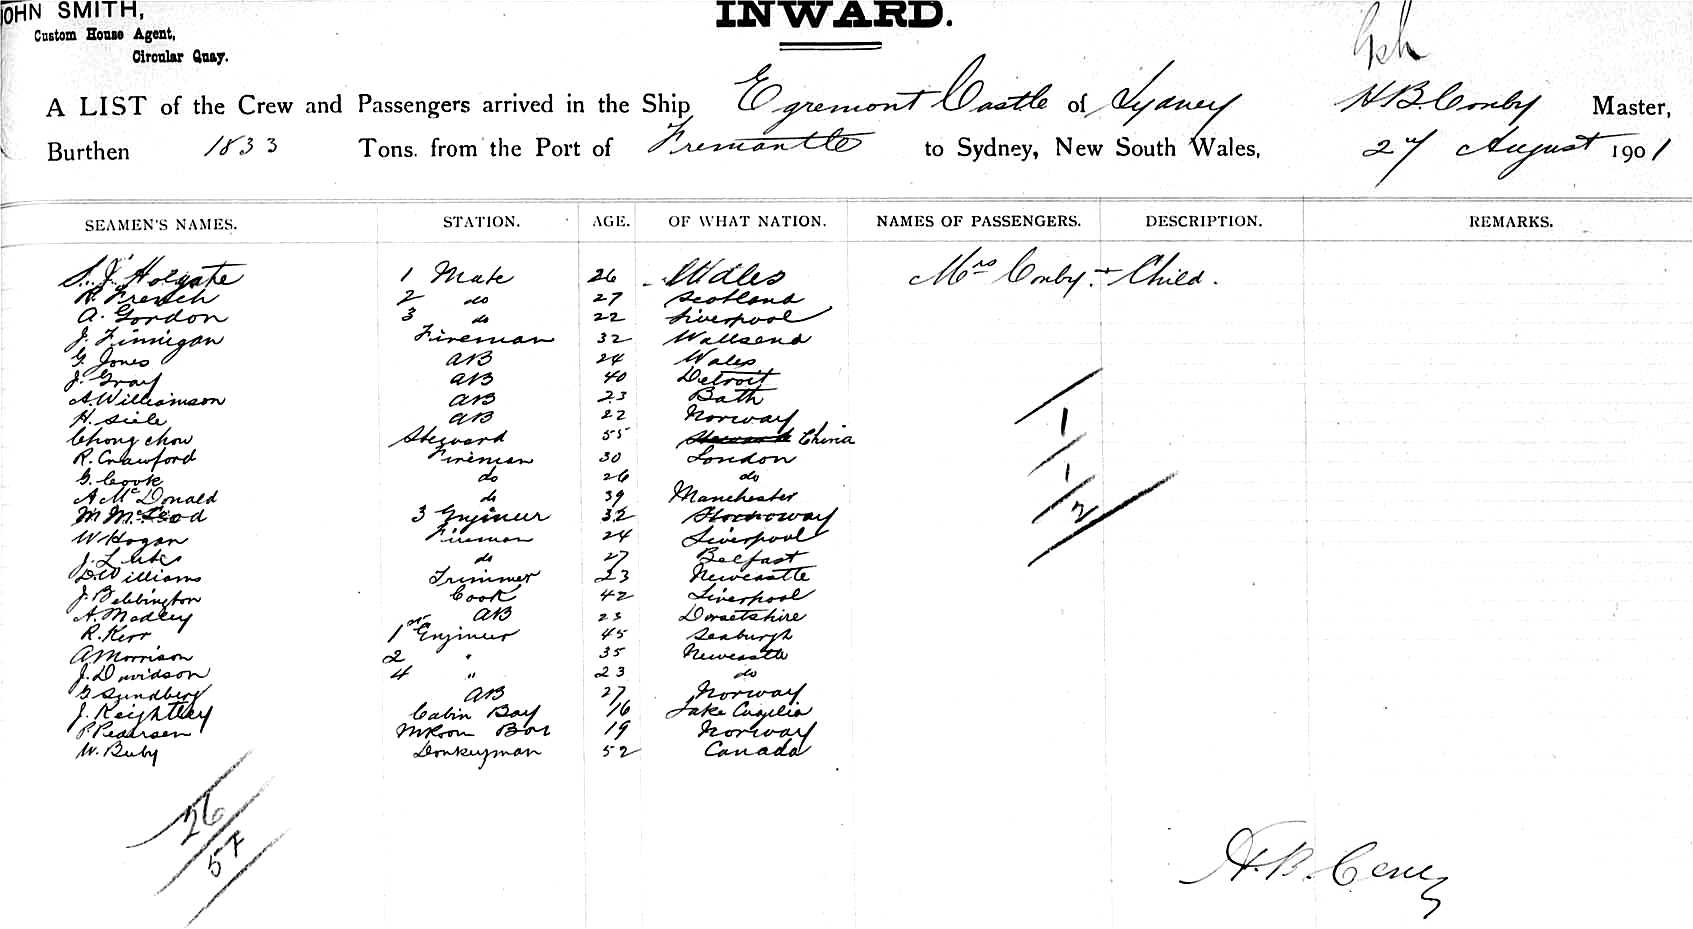 JOHN SMITH,
Custom House Agent,
Circular Quay.
INWARD.
A LIST of the Crew and Passengers arrived in the Ship Egremont Castle of Sydney H B. Conby Master,
Burthen 1833 Tons. from the Port of Fremantle to Sydney, New South Wales, 27 August 1901
SEAMEN'S NAMES. STATION. AGE. OF WHAT NATION. NAMES OF PASSENGERS. DESCRIPTION. REMARKS.
Holgate 1 Mate 26 Wales Mrs Conby + Child.
R. French 2 do 27 Scotland
A. Gordon 3 do 22 Liverpool
J. Finnigan Fireman 32 Wallsend
G. Jones AB 24 Wales
J. Gray AB 40 Detroit
A. Williamson AB 23 Bath
H. Siele AB 22 Norway
Chong Chow Steward 55 China
R. Crawford Fireman 30 London
G. Cook do 26 do
A McDonald do 39 Manchester
M McLeod 3 Engineer 32 Stornoway
W Hogan Fireman 24 Liverpool
J. do 27 Belfast
D. Williams Trimmer 23 Newcastle
J. Bebbington Cook 42 Liverpool
A. Medley AB 23 Dorsetshire
R. Kerr 1st Engineer 45 Seaburgh
A Morrison 2 " 35 Newcastle
J. Davidson 4 " 23 do
G Sundberg AB 27 Norway
J. Keightley Cabin Boy 16 Lake
P Pedersen MRoom Boy 19 Norway
W. Donkeyman 52 Canada
1
1
2
26
57
H. B.